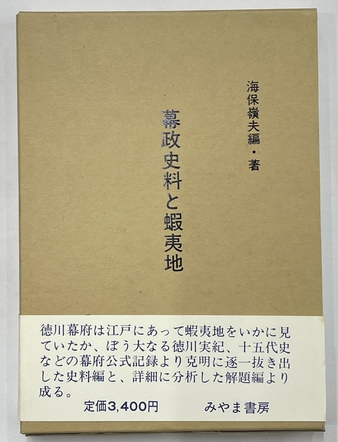 海保嶺夫編・著
幕政史料と蝦夷地
徳川幕府は江戸にあって蝦夷地をいかに見
ていたか、ぼう大なる徳川実紀、十五代史
などの幕府公式記録より克明に逐一抜き出
した史料編と、詳細に分析した解題編より
成る。
定価3,400円 みやま書房